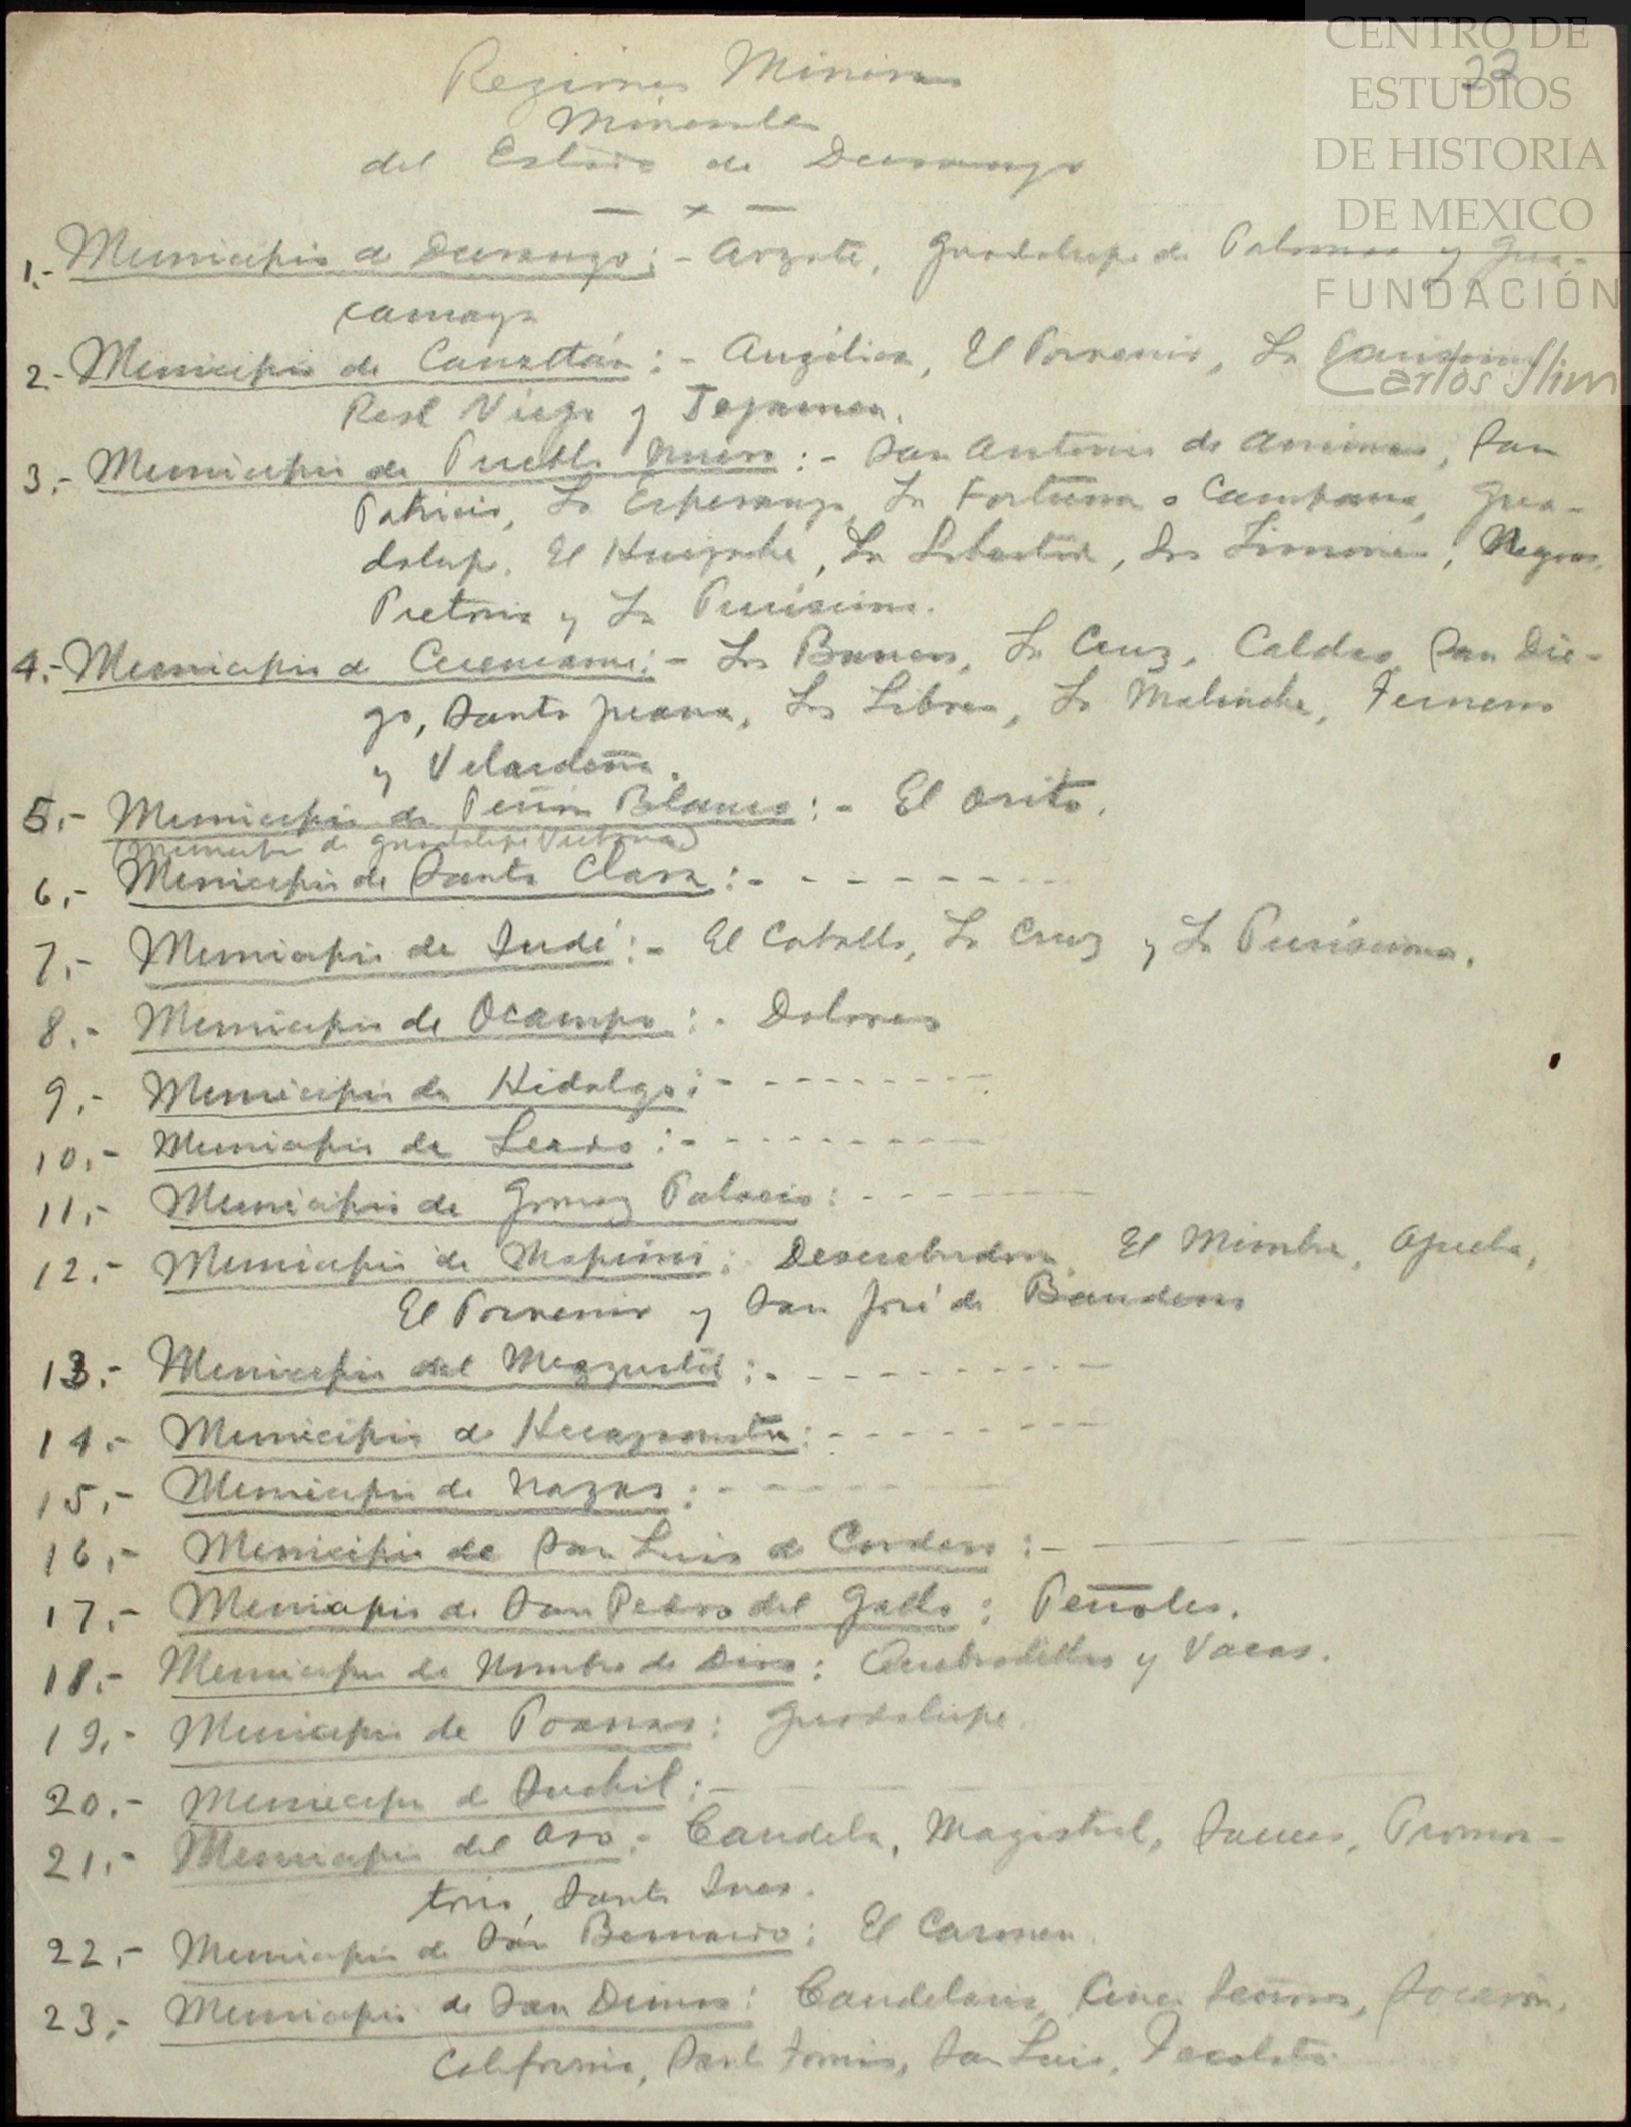 CENTRO DE
ESTUDIOS
DE HISTORIA
DE MEXICO
FUNDACIÓN
Carlos Slim
22
Regiones Mineras
Minerales
del Estado de Durango
— x —
1.- Municipio de Durango:- Arzate, Guadalupe de Palomas y Gua-
camaya
2.- Municipio de Canatlán:- Angélica, El Porvenir, La Purísima
Real Viejo y Tejamen.
3.- Municipio de Pueblo Nuevo:- San Antonio de Animas, San
Patricio, La Esperanza, La Fortuna o Campana, Gua-
dalupe, El Huejote, La Libertad, Los Limones, Negros,
Pretoria y La Purísima.
4.- Municipio de Cuencamé:- Los Bancos, La Cruz, Caldas, San Die-
go, Santa Juana, Los Libres, La Malinche, Terneros
y Velardeña.
5.- Municipio de Peñón Blanco:- El Orito.
(Municipio de Guadalupe Victoria)
6.- Municipio de Santa Clara:- - - - - - - -
7.- Municipio de Indé:- El Caballo, La Cruz y La Purísima.
8.- Municipio de Ocampo:- Dolores
9.- Municipio de Hidalgo:- - - - - - - -
10.- Municipio de Lerdo:- - - - - - - -
11.- Municipio de Gomez Palacio:- - - - - -
12.- Municipio de Mapimi: Descubridora, El Mimbre, Ojuela,
El Porvenir y San José de Banderas
13.- Municipio del Mezquital:- - - - - - - -
14.- Municipio de Huazamota:- - - - - - -
15.- Municipio de Nazas:- - - - - -
16.- Municipio de San Luis de Cordero:- —
17.- Municipio de San Pedro del Gallo: Peñoles.
18.- Municipio de Nombre de Dios: Cuadrillas y Vacas.
19.- Municipio de Poanas: Guadalupe.
20.- Municipio de Suchil:-
21.- Municipio del Oro: Candela, Magistral, Sauces, Promon-
torio, Santa Ines.
22.- Municipio de San Bernardo: El Carmen.
23.- Municipio de San Dimas: Candelaria, Cinco Señores, Socavón,
California, Santo Tomás, San Luis, Tecolota